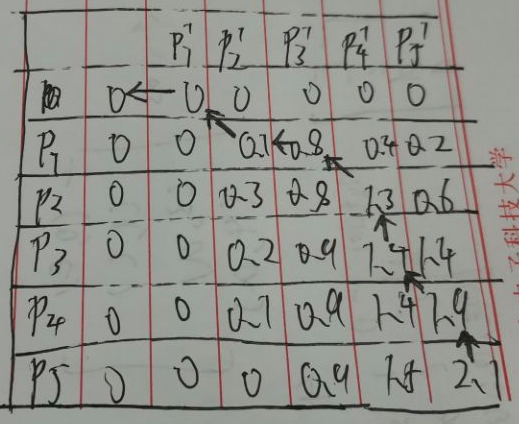 P₁' P₂' P₃' P₄' P₅'
0 0 0 0 0 0
P₁ 0 0 0.7 0.8 0.4 0.2
P₂ 0 0 0.3 0.8 1.3 0.6
P₃ 0 0 0.2 0.9 1.4 1.4
P₄ 0 0 0.1 0.9 1.4 1.9
P5 0 0 0 0.9 1.5 2.1
科技大学